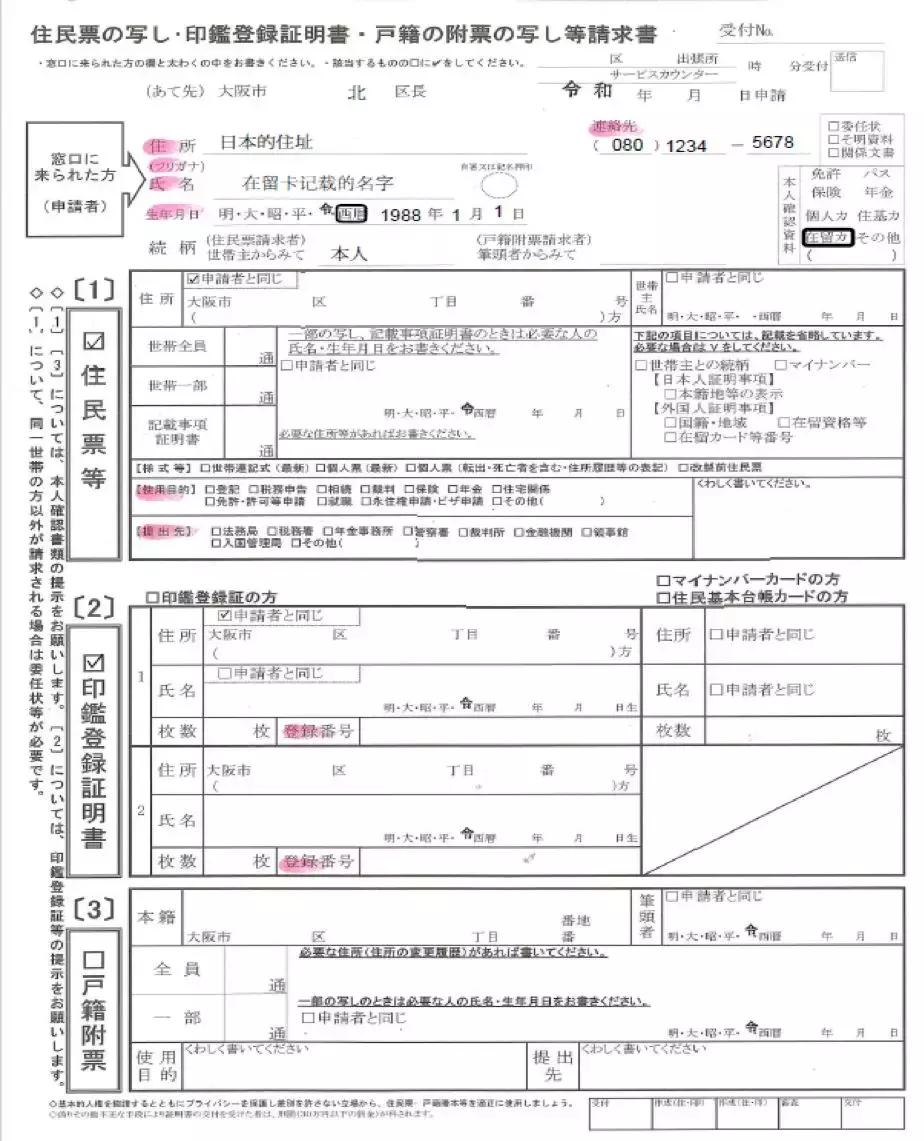 住民票の写し・印鑑登録証明書・戸籍の附票の写し等請求書 受付No.
・窓口に来られた方の欄と太わくの中をお書きください。・該当するものの□に✔をしてください。
区 出張所
サービスカウンター 時 分受付 送信
(あて先) 大阪市 北 区長
令和 年 月 日申請
窓口に
来られた方
(申請者)
住所 日本的住址
連絡先
(080)1234－5678
□委任状
□そ明資料
□関係文書
(フリガナ)
氏名 在留卡记载的名字
自署又は記名押印
生年月日 明・大・昭・平・令 西暦 1988年1月1日
続柄 (住民票請求者)
世帯主からみて 本人
(戸籍附票請求者)
筆頭者からみて
本人確認資料
免許 パス
保険 年金
個人カ 住基カ
在留カ その他
( )
◇〔1〕〔3〕については、本人確認書類の提示をお願いします。〔2〕については、印鑑登録証等の提示をお願いします。
◇〔1〕について、同一世帯の方以外が請求される場合は委任状等が必要です。
〔1〕
☑住民票等
住所 ☑申請者と同じ
大阪市 区 丁目 番 号
( )方
世帯主氏名 □申請者と同じ
明・大・昭・平・ ・西暦 年 月 日
世帯全員 通
世帯一部 通
記載事項
証明書
一部の写し、記載事項証明書のときは必要な人の
氏名・生年月日をお書きください。
□申請者と同じ
明・大・昭・平・令西暦 年 月 日
必要な住所等があればお書きください。
下記の項目については、記載を省略しています。
必要な場合は∨をしてください。
□世帯主との続柄 □マイナンバー
【日本人証明事項】
□本籍地等の表示
【外国人証明事項】
□国籍・地域 □在留資格等
□在留カード等番号
【様式等】□世帯連記式(最新)□個人票(最新)□個人票(転出・死亡者を含む・住所履歴等の表記)□改製前住民票
【使用目的】□登記 □税務申告 □相続 □裁判 □保険 □年金 □住宅関係
□免許・許可等申請 □就職 □永住権申請・ビザ申請 □その他( )
くわしく書いてください。
【提出先】□法務局 □税務署 □年金事務所 □警察署 □裁判所 □金融機関 □領事館
□入国管理局 □その他( )
〔2〕
☑印鑑登録証明書
□印鑑登録証の方
□マイナンバーカードの方
□住民基本台帳カードの方
1
住所 ☑申請者と同じ
大阪市 区 丁目 番 号
( )方
氏名 □申請者と同じ
明・大・昭・平・令西暦 年 月 日生
枚数 枚 登録番号
住所 □申請者と同じ
氏名 □申請者と同じ
枚数 枚
2
住所 大阪市 区 丁目 番 号
( )方
氏名
明・大・昭・平・令西暦 年 月 日生
枚数 枚 登録番号
〔3〕
□戸籍附票
本籍 番地
大阪市 区 丁目 番
筆頭者 □申請者と同じ
明・大・昭・平・令西暦 年 月 日
全員 通
必要な住所(住所の変更履歴)があれば書いてください。
一部 通
一部の写しのときは必要な人の氏名・生年月日をお書きください。
□申請者と同じ
明・大・昭・平・令西暦 年 月 日
使用
目的 くわしく書いてください
提出
先 くわしく書いてください
◇基本的人権を擁護するとともにプライバシーを保護し差別を許さない立場から、住民票・戸籍謄本等を適正に使用しましょう。
◇偽りその他不正な手段により証明書の交付を受けた者は、刑罰(30万円以下の罰金)が科されます。
受付 作成(住・印) 作成(住・印) 審査 交付